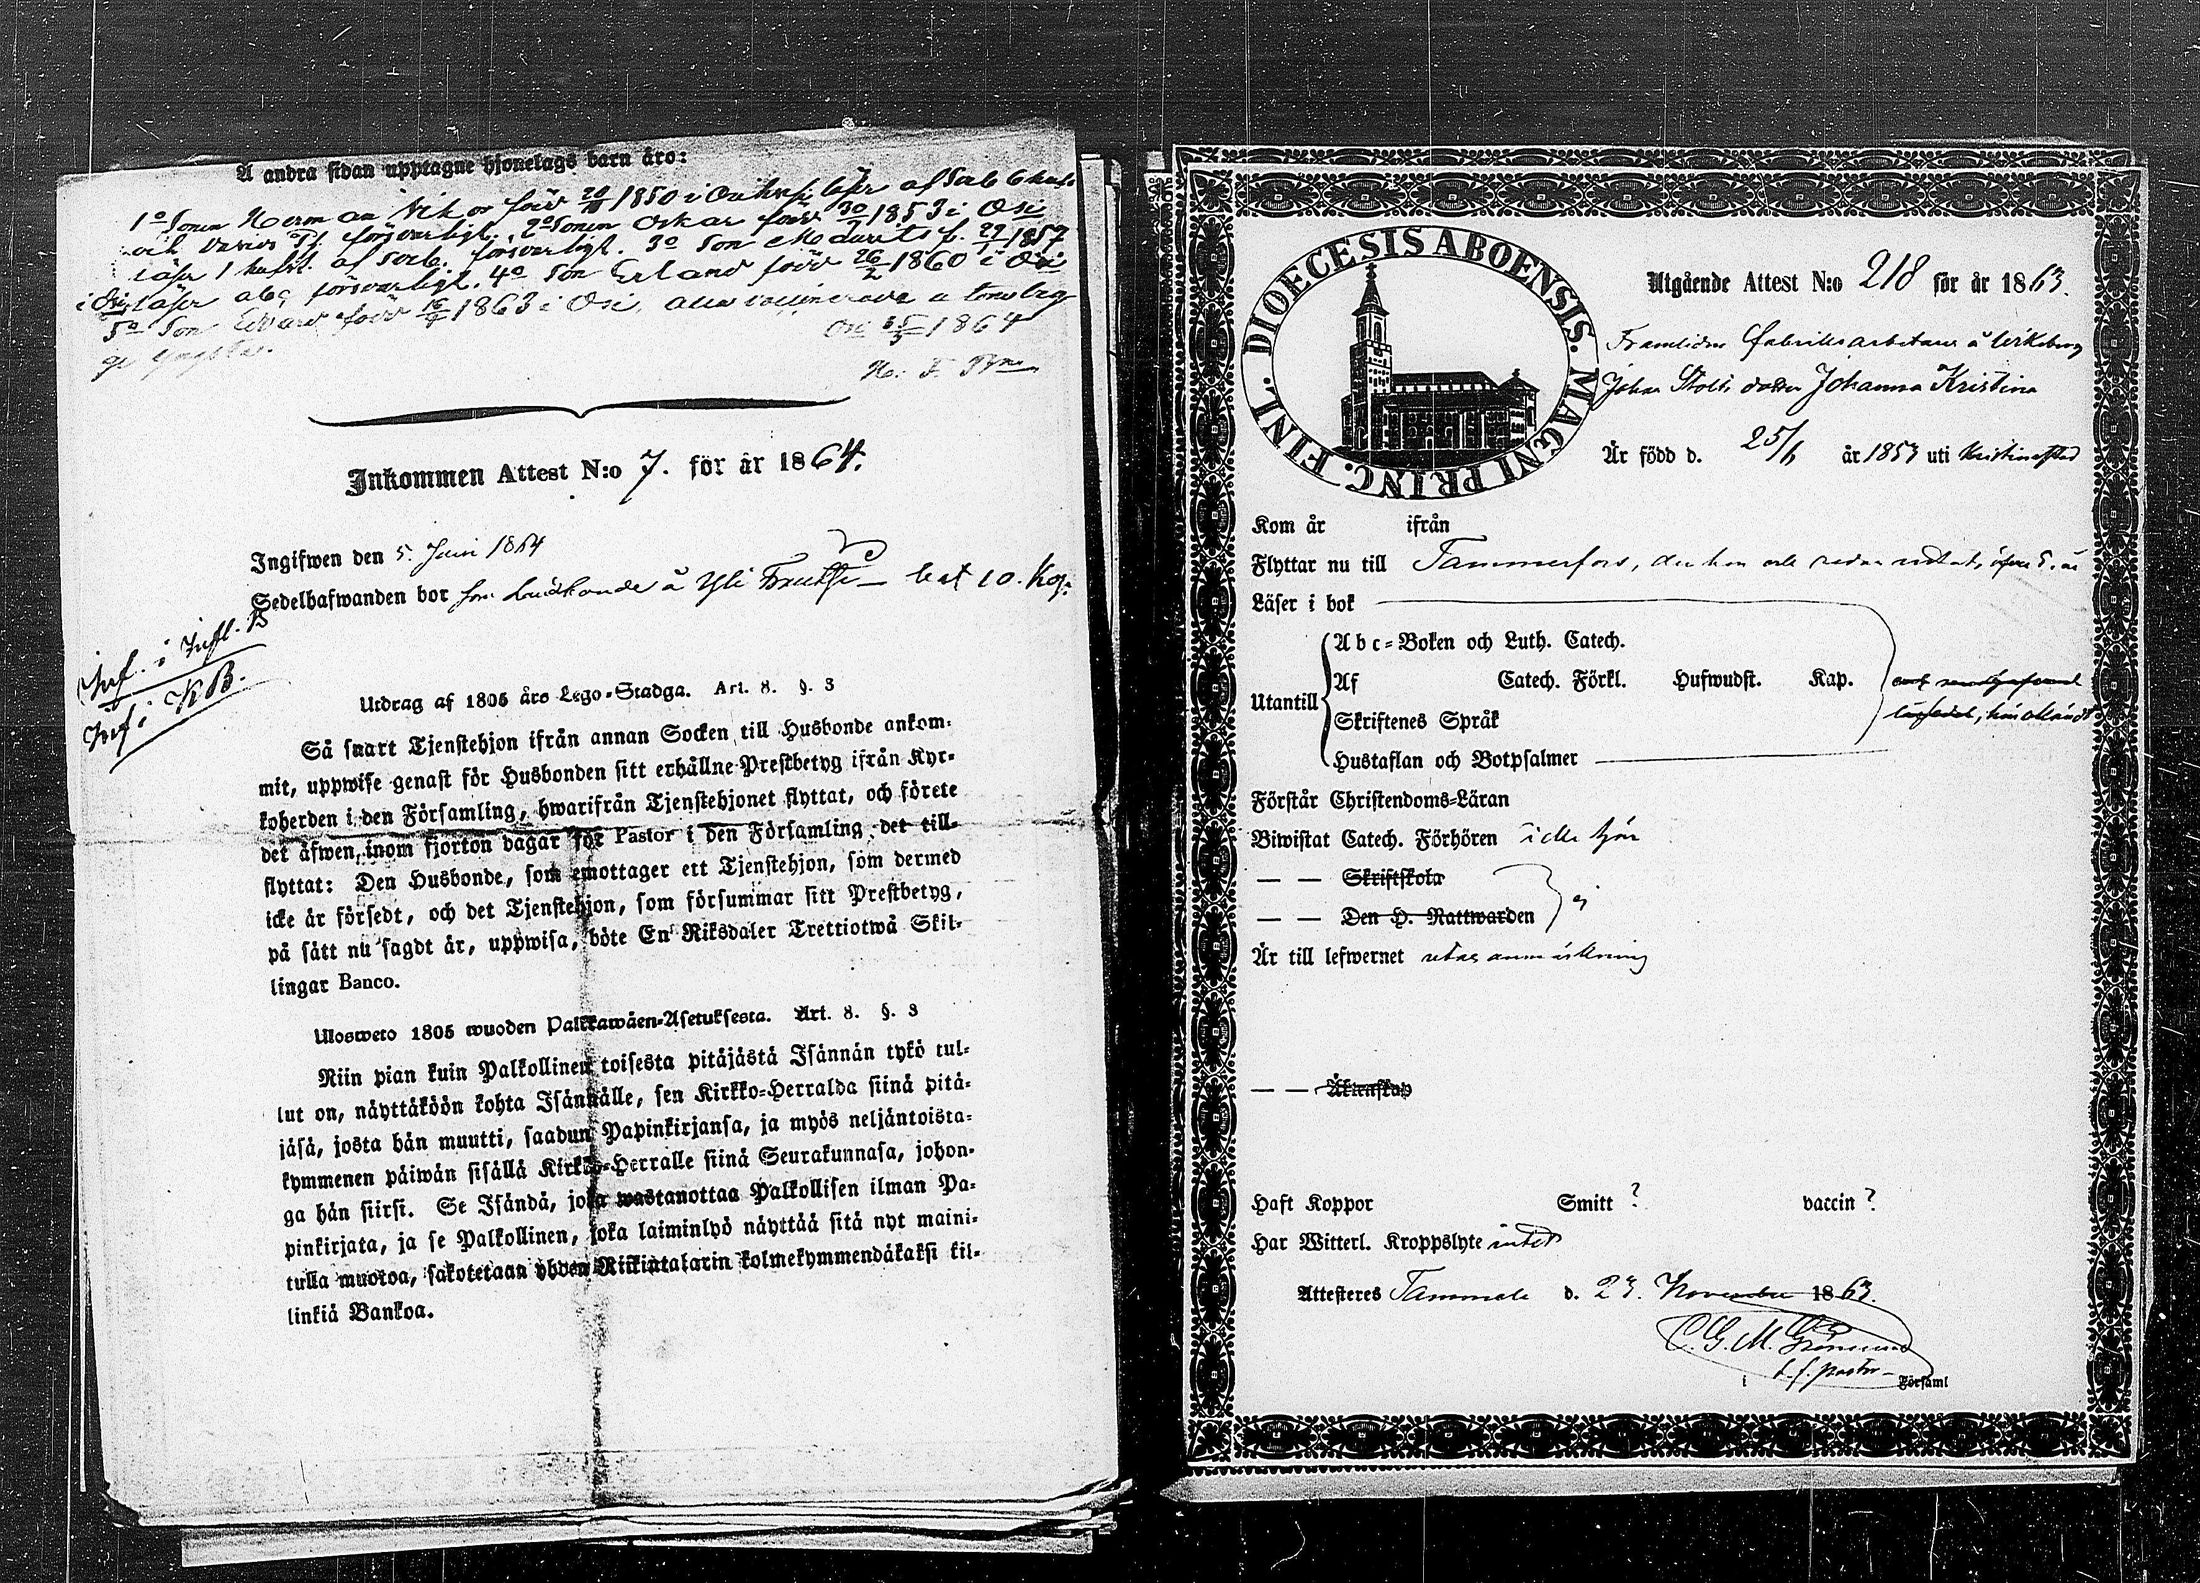 Å andra sidan upptagne hjonelags barn äro:
1o Sonen Herman Viktor född 1850 i
2o Sonen Oskar född 30 1853 i
försvarligt. 3o Son f. 29/1 1857
läser af försvarligt. 4o Son Erland född 26/2 1860 i
läser abc försvarligt.
5o Son född 1863 i
1864
Inkommen Attest N:o 7. för år 1864.
Ingifwen den 5. Juni 1864
Sedelhafwanden bor å Yli bet 10. Kop.
Inf. i Infl. B
Inf i KB.
Utdrag af 1805 års Lego-Stadga. Art. 8. §. 3
Så snart Tjenstehjon ifrån annan Socken till Husbonde ankom-
mit, uppwise genast för Husbonden sitt erhållne Prestbetyg ifrån Kyr-
koherden i den Församling, hwarifrån Tjenstehjonet flyttat, och förete
det äfwen, inom fjorton dagar för Pastor i den Församling det till-
flyttat: Den Husbonde, som emottager ett Tjenstehjon, som dermed
icke är försedt, och det Tjenstehjon, som försummar sitt Prestbetyg,
på sätt nu sagdt är, uppwisa, böte En Riksdaler Trettiotwå Skil-
lingar Banco.
Ulosweto 1805 wuoden Palkkawäen-Asetuksesta. Art. 8. §. 3
Niin pian kuin Palkollinen toisesta pitäjästä Isännän tykö tul-
lut on, näyttäköön kohta Isännälle, sen Kirkko-Herralda siinä pitä-
jäsä, josta hän muutti, saadun Papinkirjansa, ja myös neljäntoista-
kymmenen päiwän sisällä Kirkko-Herralle siinä Seurakunnasa, johon-
ga hän siirsi. Se Isändä, joka wastanottaa Palkollisen ilman Pa-
pinkirjata, ja se Palkollinen, joka laiminlyö näyttää sitä nyt maini-
tulla muotoa, sakotetaan yhden Riikintalarin kolmekymmendäkaksi kil-
linkiä Bankoa.
DIOECESIS ABOENSIS. MAGNI PRINC. FINL.
Utgående Attest N:o 218 för år 1863.
Framlidne Fabriksarbetaren å
Johan Stolts dotter Johanna Kristina
Är född d. 25/6 år 1853 uti Kristinestad
Kom år ifrån
Flyttar nu till Tammerfors, der hon redan vistats öfver 5. år
Läser i bok
Utantill
Abc-Boken och Luth. Catech.
Af Catech. Förkl. Hufwudst. Kap.
Skriftenes Språk
Hustaflan och Botpsalmer
Förstår Christendoms-Läran
Biwistat Catech. Förhören icke här
— — Skriftskola
— — Den H. Nattwarden ej
Är till lefwernet utan anmärkning
— — Äktenskap
Haft Koppor Smitt ? vaccin ?
Har Witterl. Kroppslyte intet
Attesteres Tammela d. 23. November 1863.
C. G. M. Grönlund
t. f. pastor
i Församl